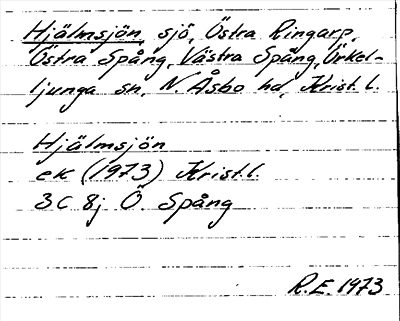 Hjälmsjön, sjö, Östra Ringarp,
Östra Spång, Västra Spång, Örkel-
ljunga sn, N. Åsbo hd, Krist. l.
Hjälmsjön
ek (1973) Krist. l.
3C 8j Ö. Spång
R.E. 1973